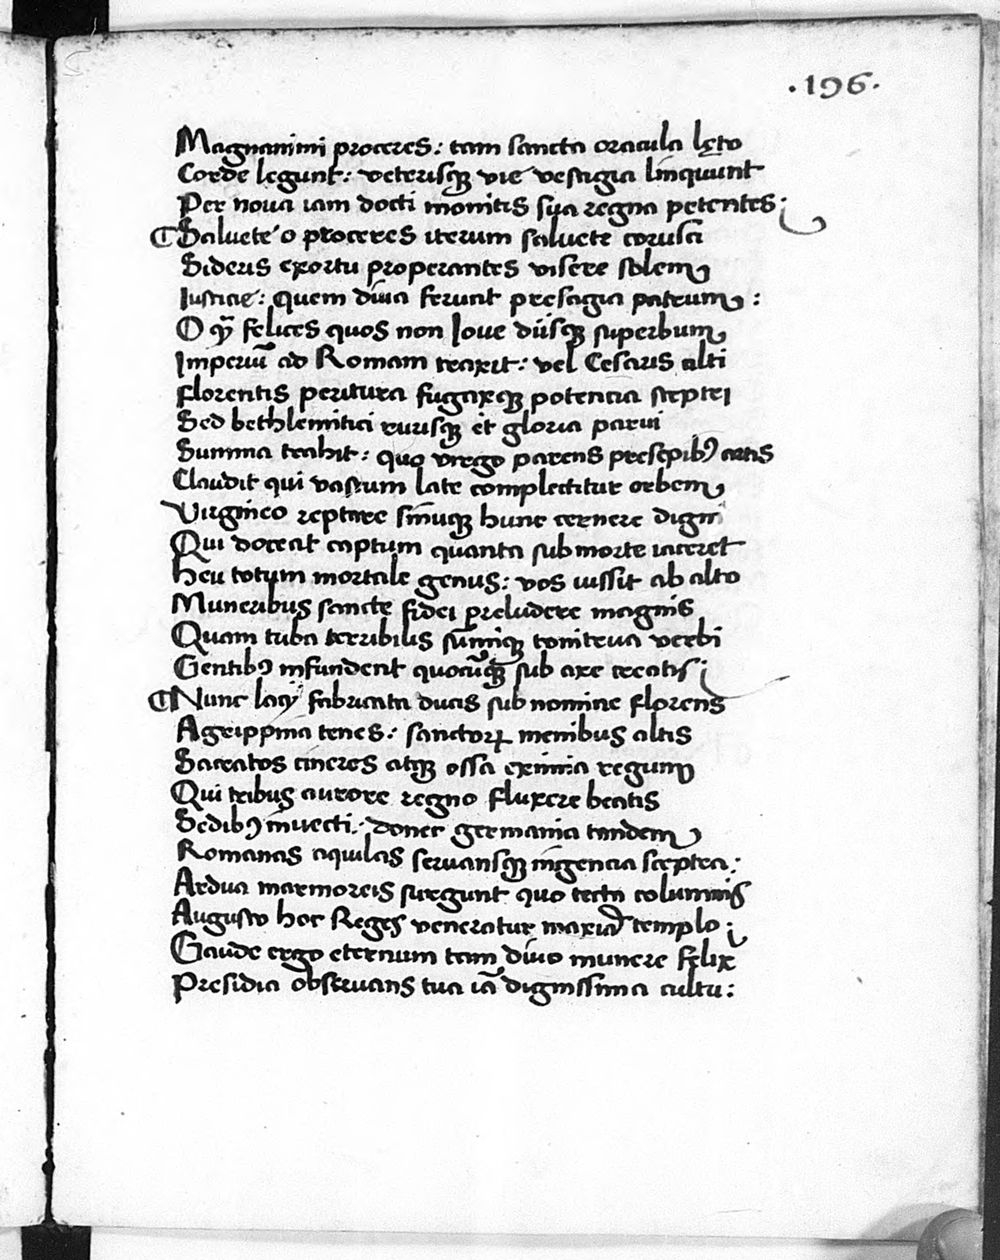 ·196·
Magnanimi proceres: tam sancta oracula lęto
Corde legunt: veterisqꝫ vie vestigia linquunt
Per noua iam docti monitis sua regna petentes:
¶ Saluete o proceres iterum saluete corusci
Sideris exortu properantes visere solem
Iusticie: quem diuia ferunt presagia patrum:
O qͫ felices quos non Ioue diisqꝫ superbum
Imperiū ad Romam traxit: vel Cesaris alti
Florentis peritura fugaxqꝫ potencia sceptri
Sed bethlemitici rurisqꝫ et gloria parui
Summa trahit: quo virgo parens presepibꝰ artis
Claudit qui vastum late complectitur orbem
Virgineo reptare sinuqꝫ hunc cernere digni
Qui doceat captum quanta sub morte iaceret
Heu totum mortale genus: vos iussit ab alto
Muneribus sancte fidei preludere magnis
Quam tuba terribilis summiqꝫ tonitrua verbi
Gentibꝰ infunderit quocūqꝫ sub axe creatis;
¶ Nunc fabricata ducis sub nomine florens
Agrippina tenes: sanctoꝝ menibus altis
Sacratos cineres atqꝫ ossa eximia regum
Qui tribus aurore regno fluxere beatis
Sedibꝰ inuecti: donec germania tandem
Romanas aquilas seruansqꝫ ingencia sceptra:
Ardua marmoreis surgunt quo tecta columnis
Augusto hoc Reges veneratur templo;
Gaude ergo eternum tam diuo munere felix
Presidia obseruans tua iā dignissima cultu: